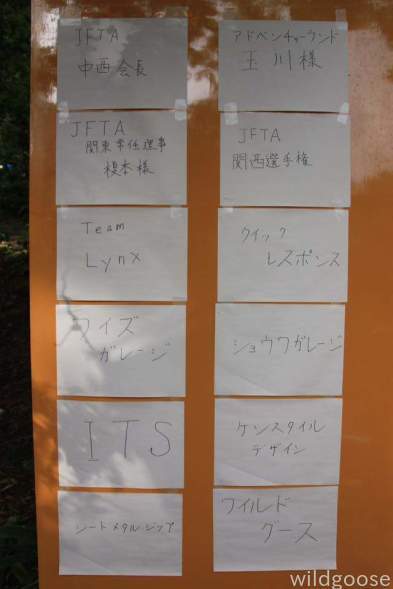 JFTA
中西会長
アドベンチャーランド
玉川様
JFTA
関東常任理事
榎本様
JFTA
関西選手権
Team
Lynx
クイック
レスポンス
ワイズ
ガレージ
ショウワガレージ
ITS
ケンスタイル
デザイン
シートメタルジップ
ワイルド
グース
wildgoose